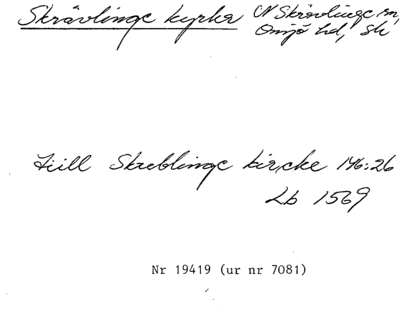 Skrävlinge kyrka N Skrävlinge sn,
Onsjö hd, Sk
Till Skreblinge kircke 146:26
Lb 1569
Nr 19419 (ur nr 7081)